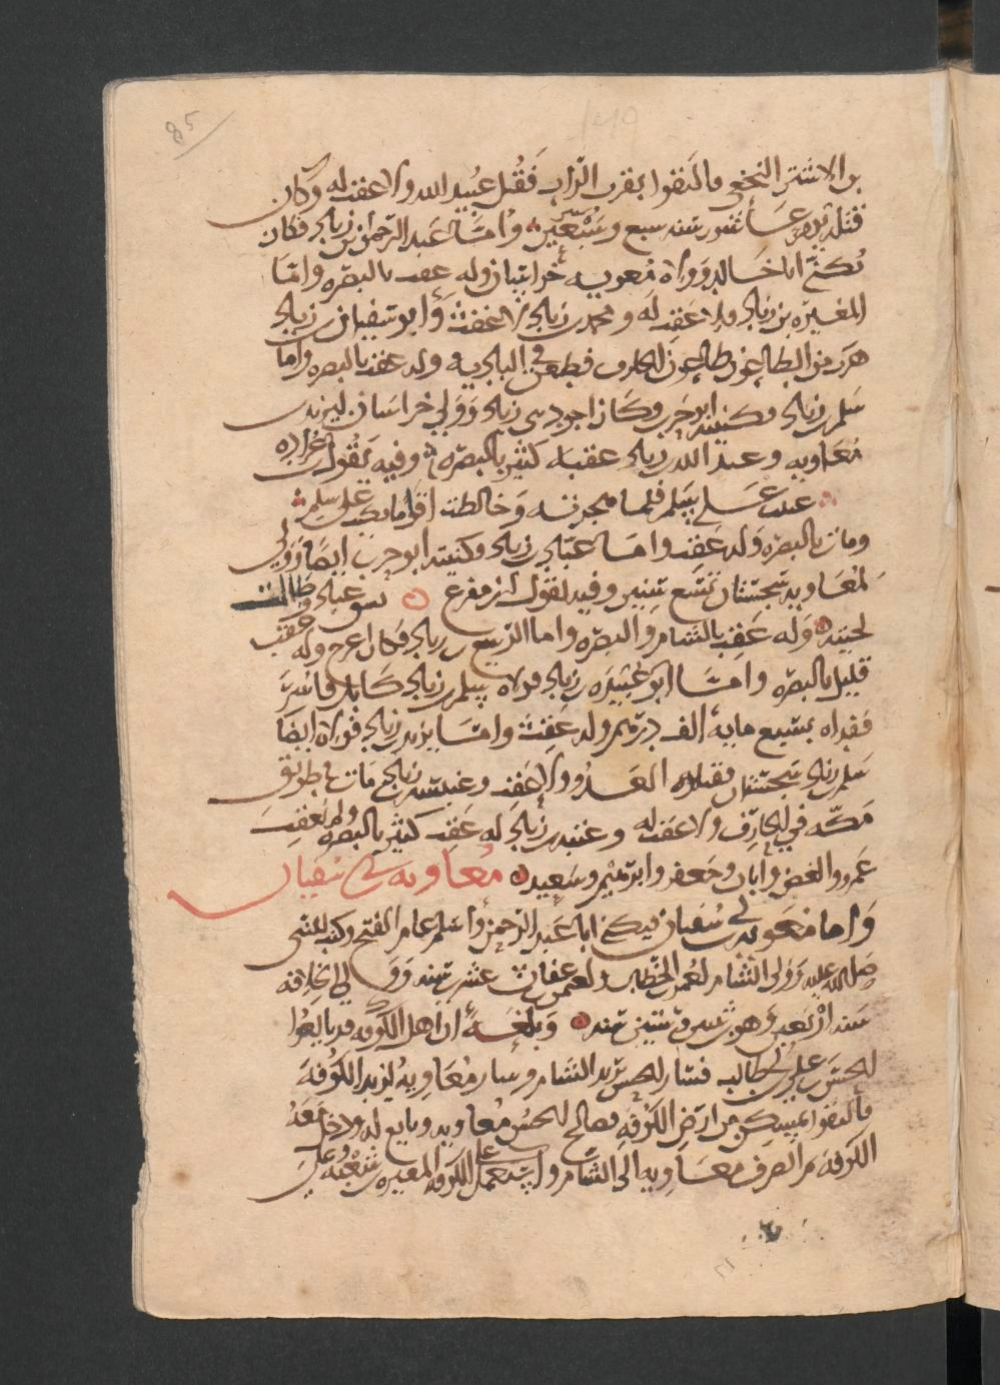 85
بن الاشتر النخعي فالتقوا بقرب الزاب فقتل عبيد الله ولا عقب له وكان
قتله يوم عاشور سنه سبع وستين وامّا عبد الرحمن بن زياد فكان
يكنى ابا خالد وولاه معويه خراسان وله عقب بالبصره وامّا
المغيره بن زياد ولا عقب له ومحمد بن زياد لا عقب وابو سفيان بن زياد
هرب من الطاعون طاعون الجارف فطعن في الباديه وله عقب بالبصره واما
سلم بن زياد وكنيته ابو حرب وكان اجود بني زياد وولي خراسان ليزيد بن
معاويه وعبد الله بن زياد عقبه كثير بالبصره وفيه يقول ابن عراده
عتبت على سلم فلما هجرته وخالطت اقواما بكيت على سلم
ومات بالبصره وله عقب وامّا عبّاد بن زياد وكنيته ابو حرب ايضا وولي
لمعاويه سجستان تسع سنين وفيه يقول ابن مفرغ سبق عباد وصلّت
لحيته وله عقب بالشام والبصره واما الربيع بن زياد فكان اعرج وله عقب
قليل بالبصره وامّا ابو عبيده بن زياد فولاه سلم بن زياد كابل فاسر
ففداه بسبع مايه الف درهم وله عقب وامّا يزيد بن زياد فولاه ايضا
سلم بن زياد سجستان فقتله العدو ولا عقب وعنبسه بن زياد مات في طريق
مكّه في الجارف ولا عقب له وعتبه بن زياد له عقب كثير بالبصره ولم يعقب
عمرو والغصن وابان وجعفر وابرهيم وسعيد معاويه بن ابي سفيان
وامّا معويه بن ابي سفيان فيكنى ابا عبد الرحمن واسلم عام الفتح وكتب للنبي
صلى الله عليه وولي الشام لعمر بن الخطاب ولعثمن بن عفان عشرين سنه وولي الخلافه
سنه اربعين وهو ابن سنتين وستين سنه وبلغه ان اهل الكوفه قد بايعوا
للحسن بن علي بن ابي طالب فسار للحسن يريد الشام وسار معاويه يريد الكوفة
فالتقوا بمسكن من ارض الكوفه فصالح للحسن معاويه وبايع له ودخل معه
الكوفه ثم انصرف معاويه الى الشام واستعمل على الكوفه المغيره بن شعبه وعلى